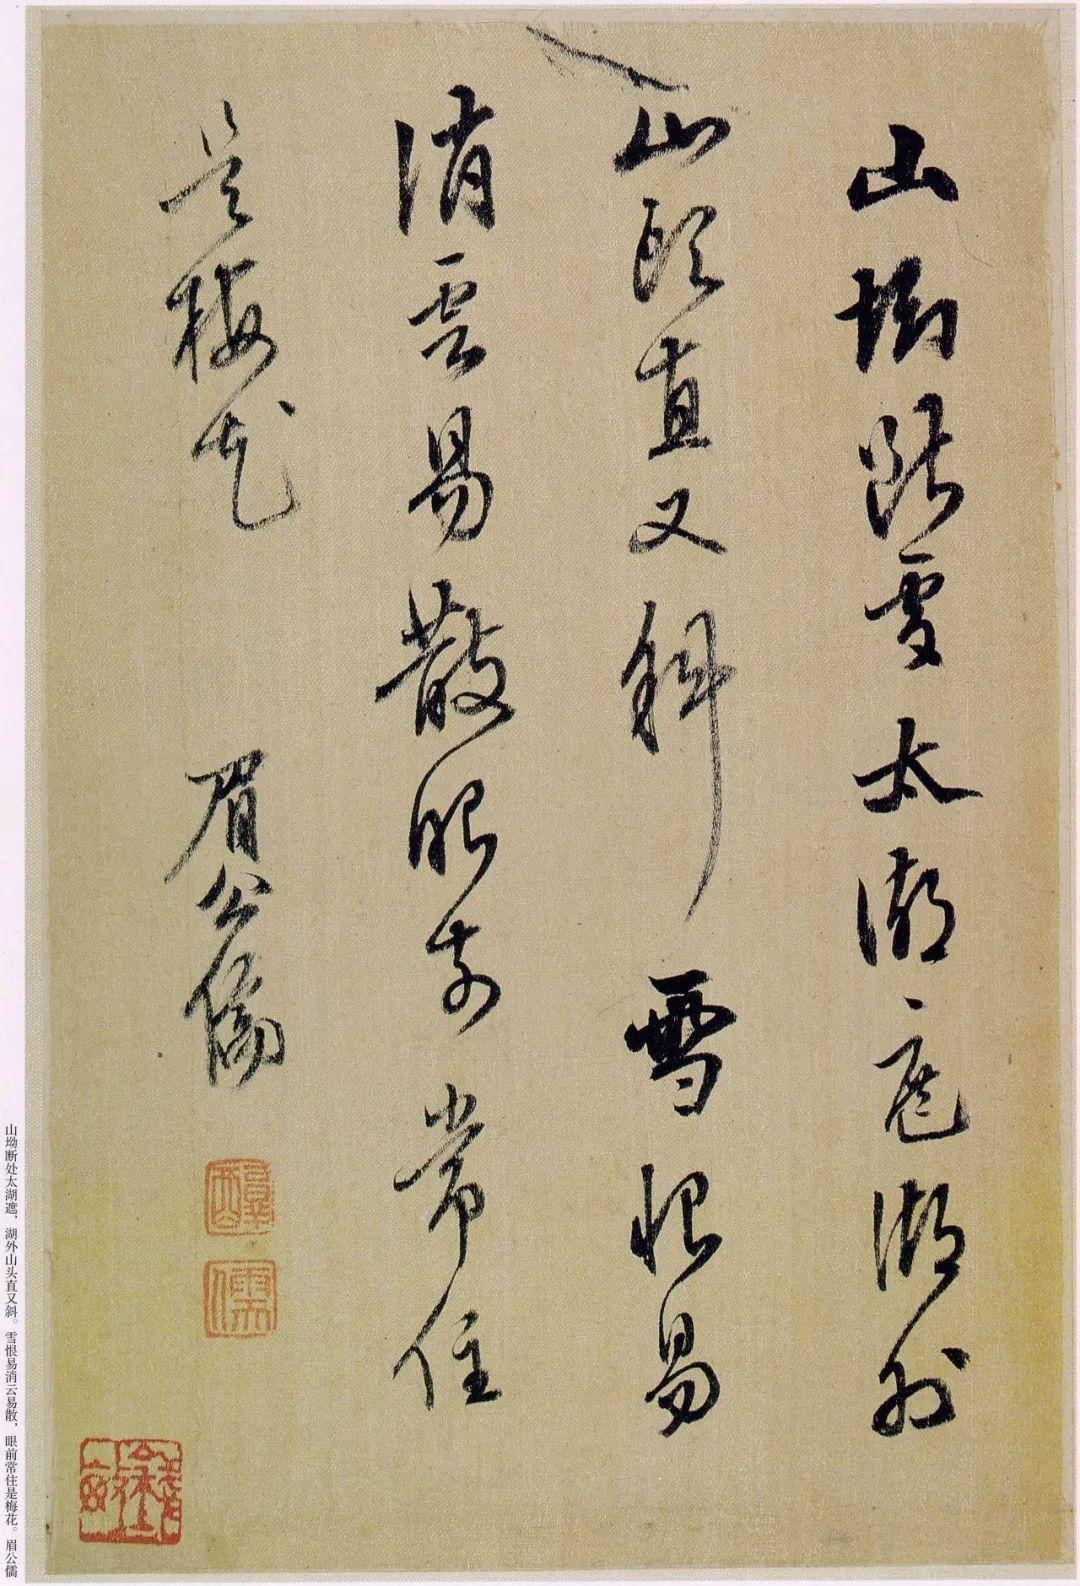 山坳斷處太湖遮湖外
山頭直又斜雪恨易
消雲易散眼前常住
是梅花
眉公儒
醇
儒
山坳断处太湖遮，湖外山头直又斜。雪恨易消云易散，眼前常住是梅花。眉公儒